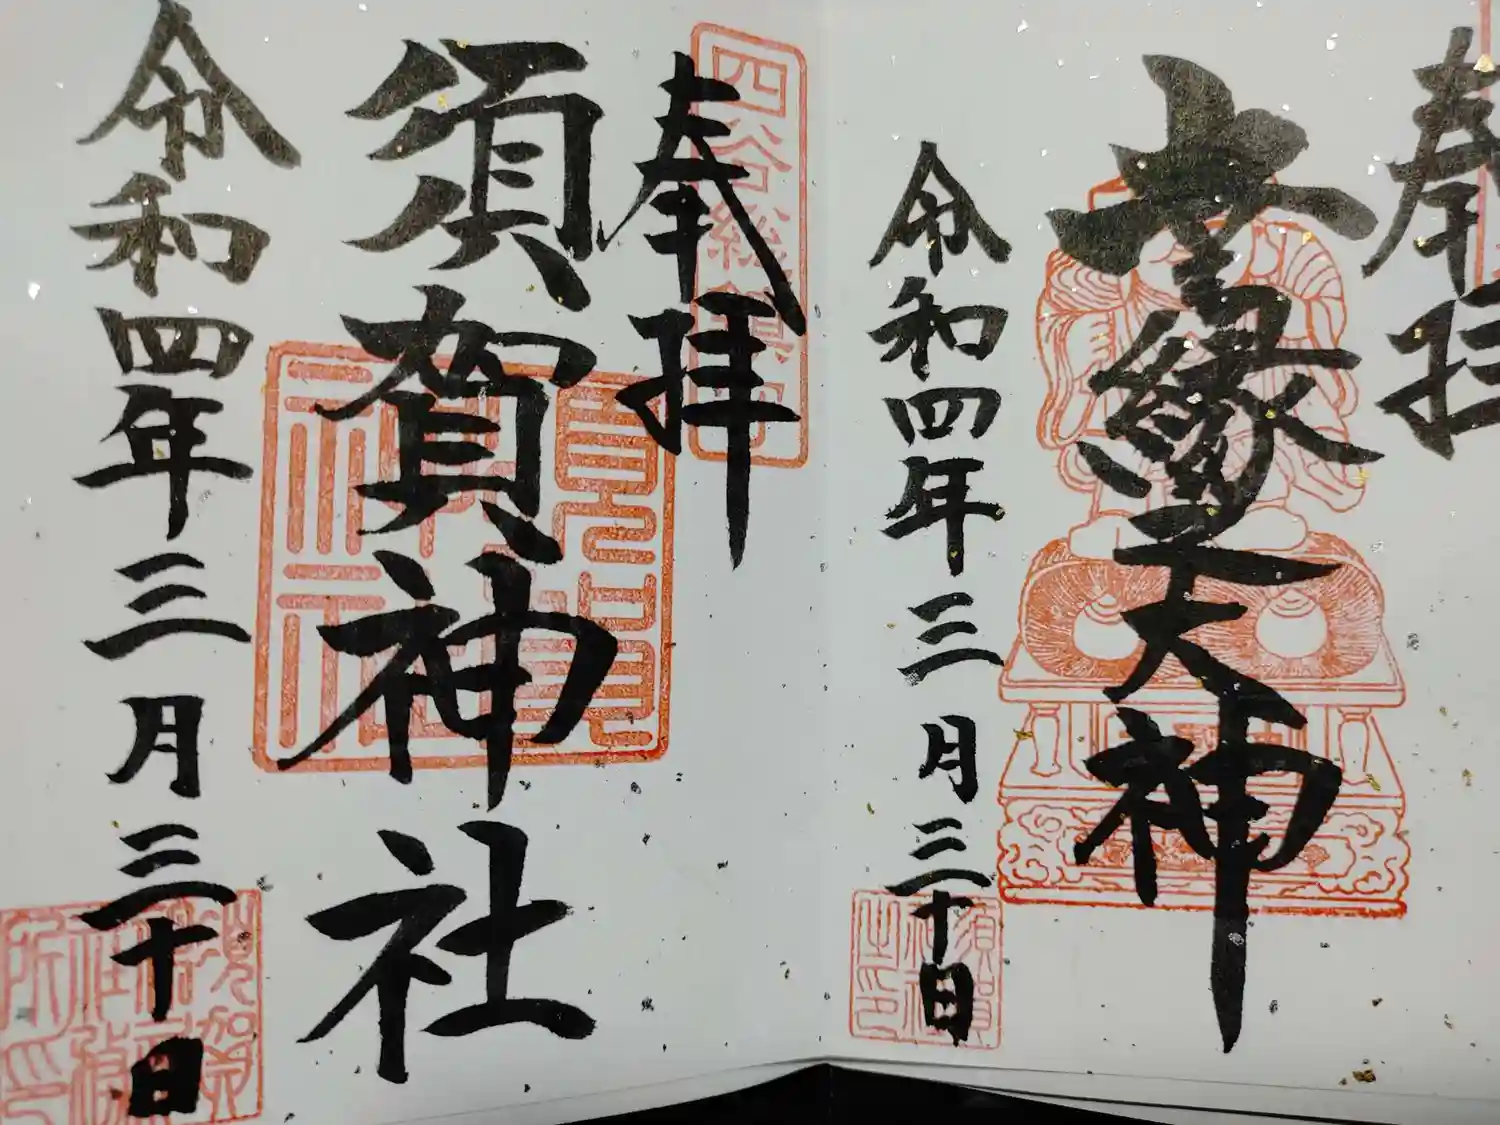 奉拝
幸縁之大神
令和四年三月三十日
須賀
神社
之印
四谷総鎮守
奉拝
須賀神社
令和四年三月三十日
須賀
神社
社務
所印